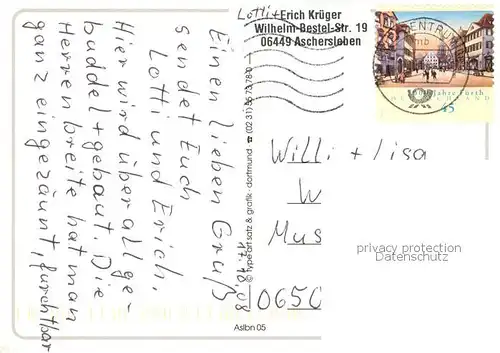 Lotti +
Erich Krüger
Wilhelm-Bestel-Str. 19
06449 Aschersleben
ENTRUM
1000 Jahre Fürth
DEUTSCHLAND
45
17.10.08
Einen lieben Gruß
sendet Euch
Lotti und Erich.
Hier wird überall ge-
buddel + gebaut. Die
Herren breite hat man
ganz eingezäunt, furchtbar
© type art satz & grafik · dortmund
Willi + Lisa
W
Mus
0650
privacy protection
Datenschutz
Aslbn 05